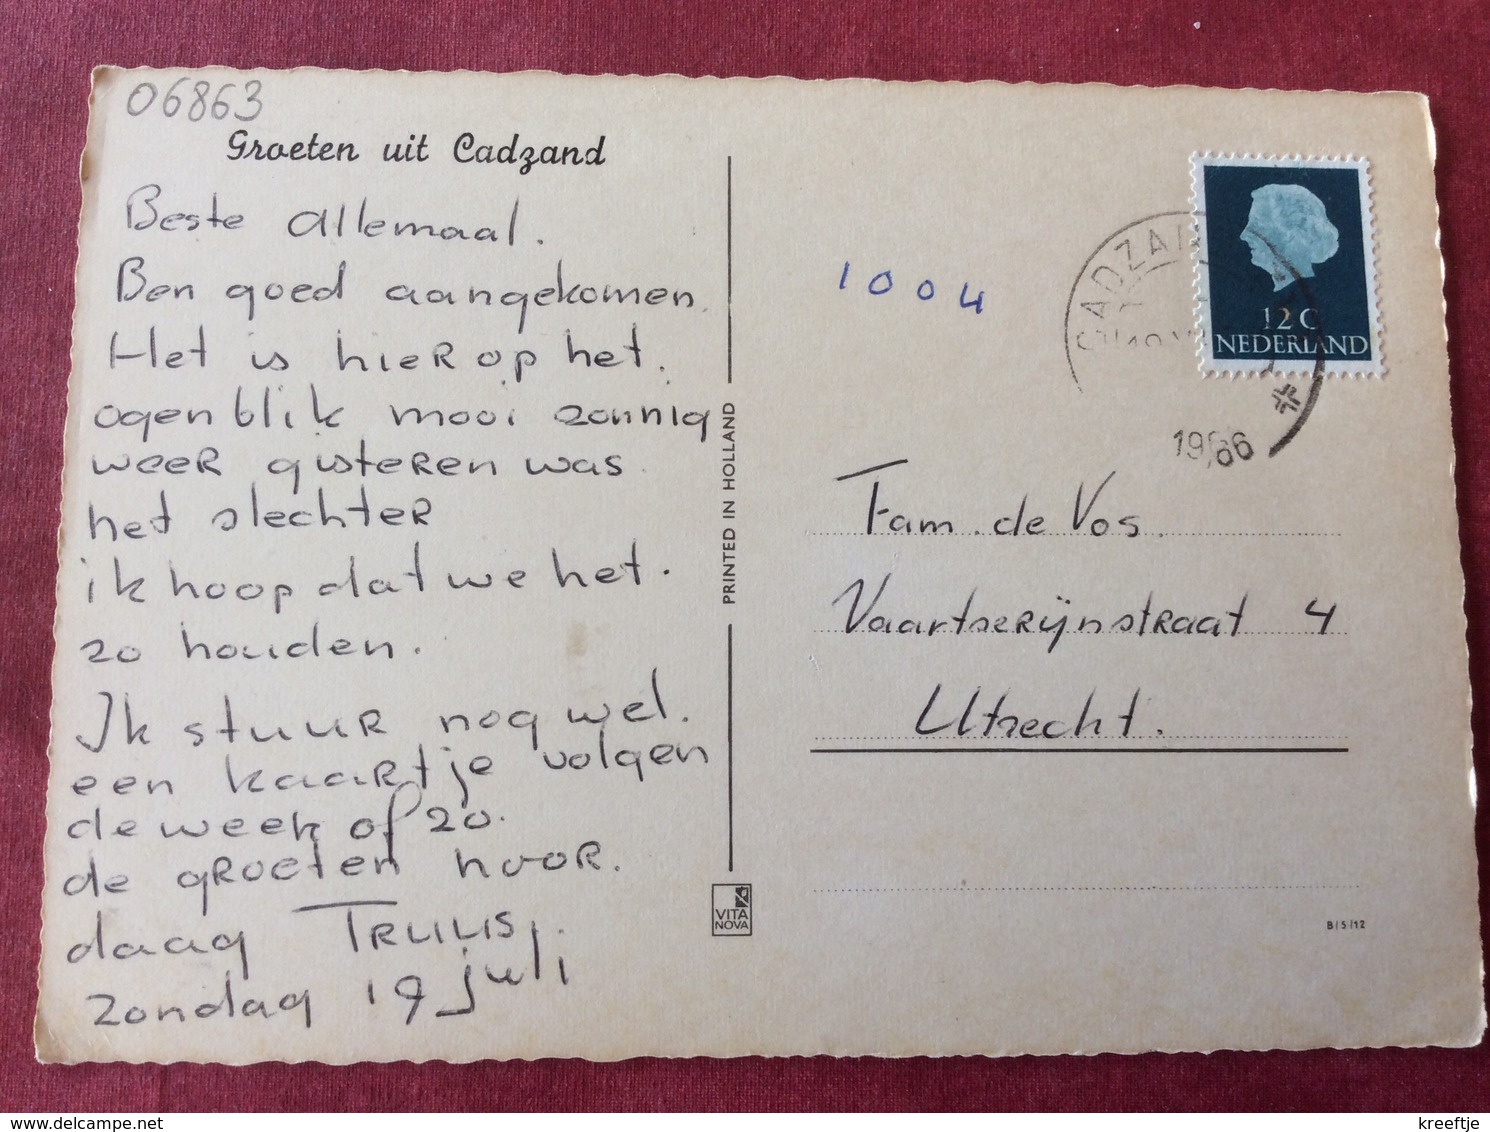 06863
Groeten uit Cadzand
Beste allemaal.
Ben goed aangekomen.
Het is hier op het.
ogenblik mooi zonnig
weer gisteren was
het slechter
ik hoop dat we het.
zo houden.
Ik stuur nog wel.
een kaartje volgen
de week of zo.
de groeten hoor.
daag Truus.
zondag 19 juli
PRINTED IN HOLLAND
VITA
NOVA
1004
CADZAND
12 C
NEDERLAND
1966
Fam. de Vos.
Vaartserijnstraat 4
Utrecht.
B/5/12
kreeftje